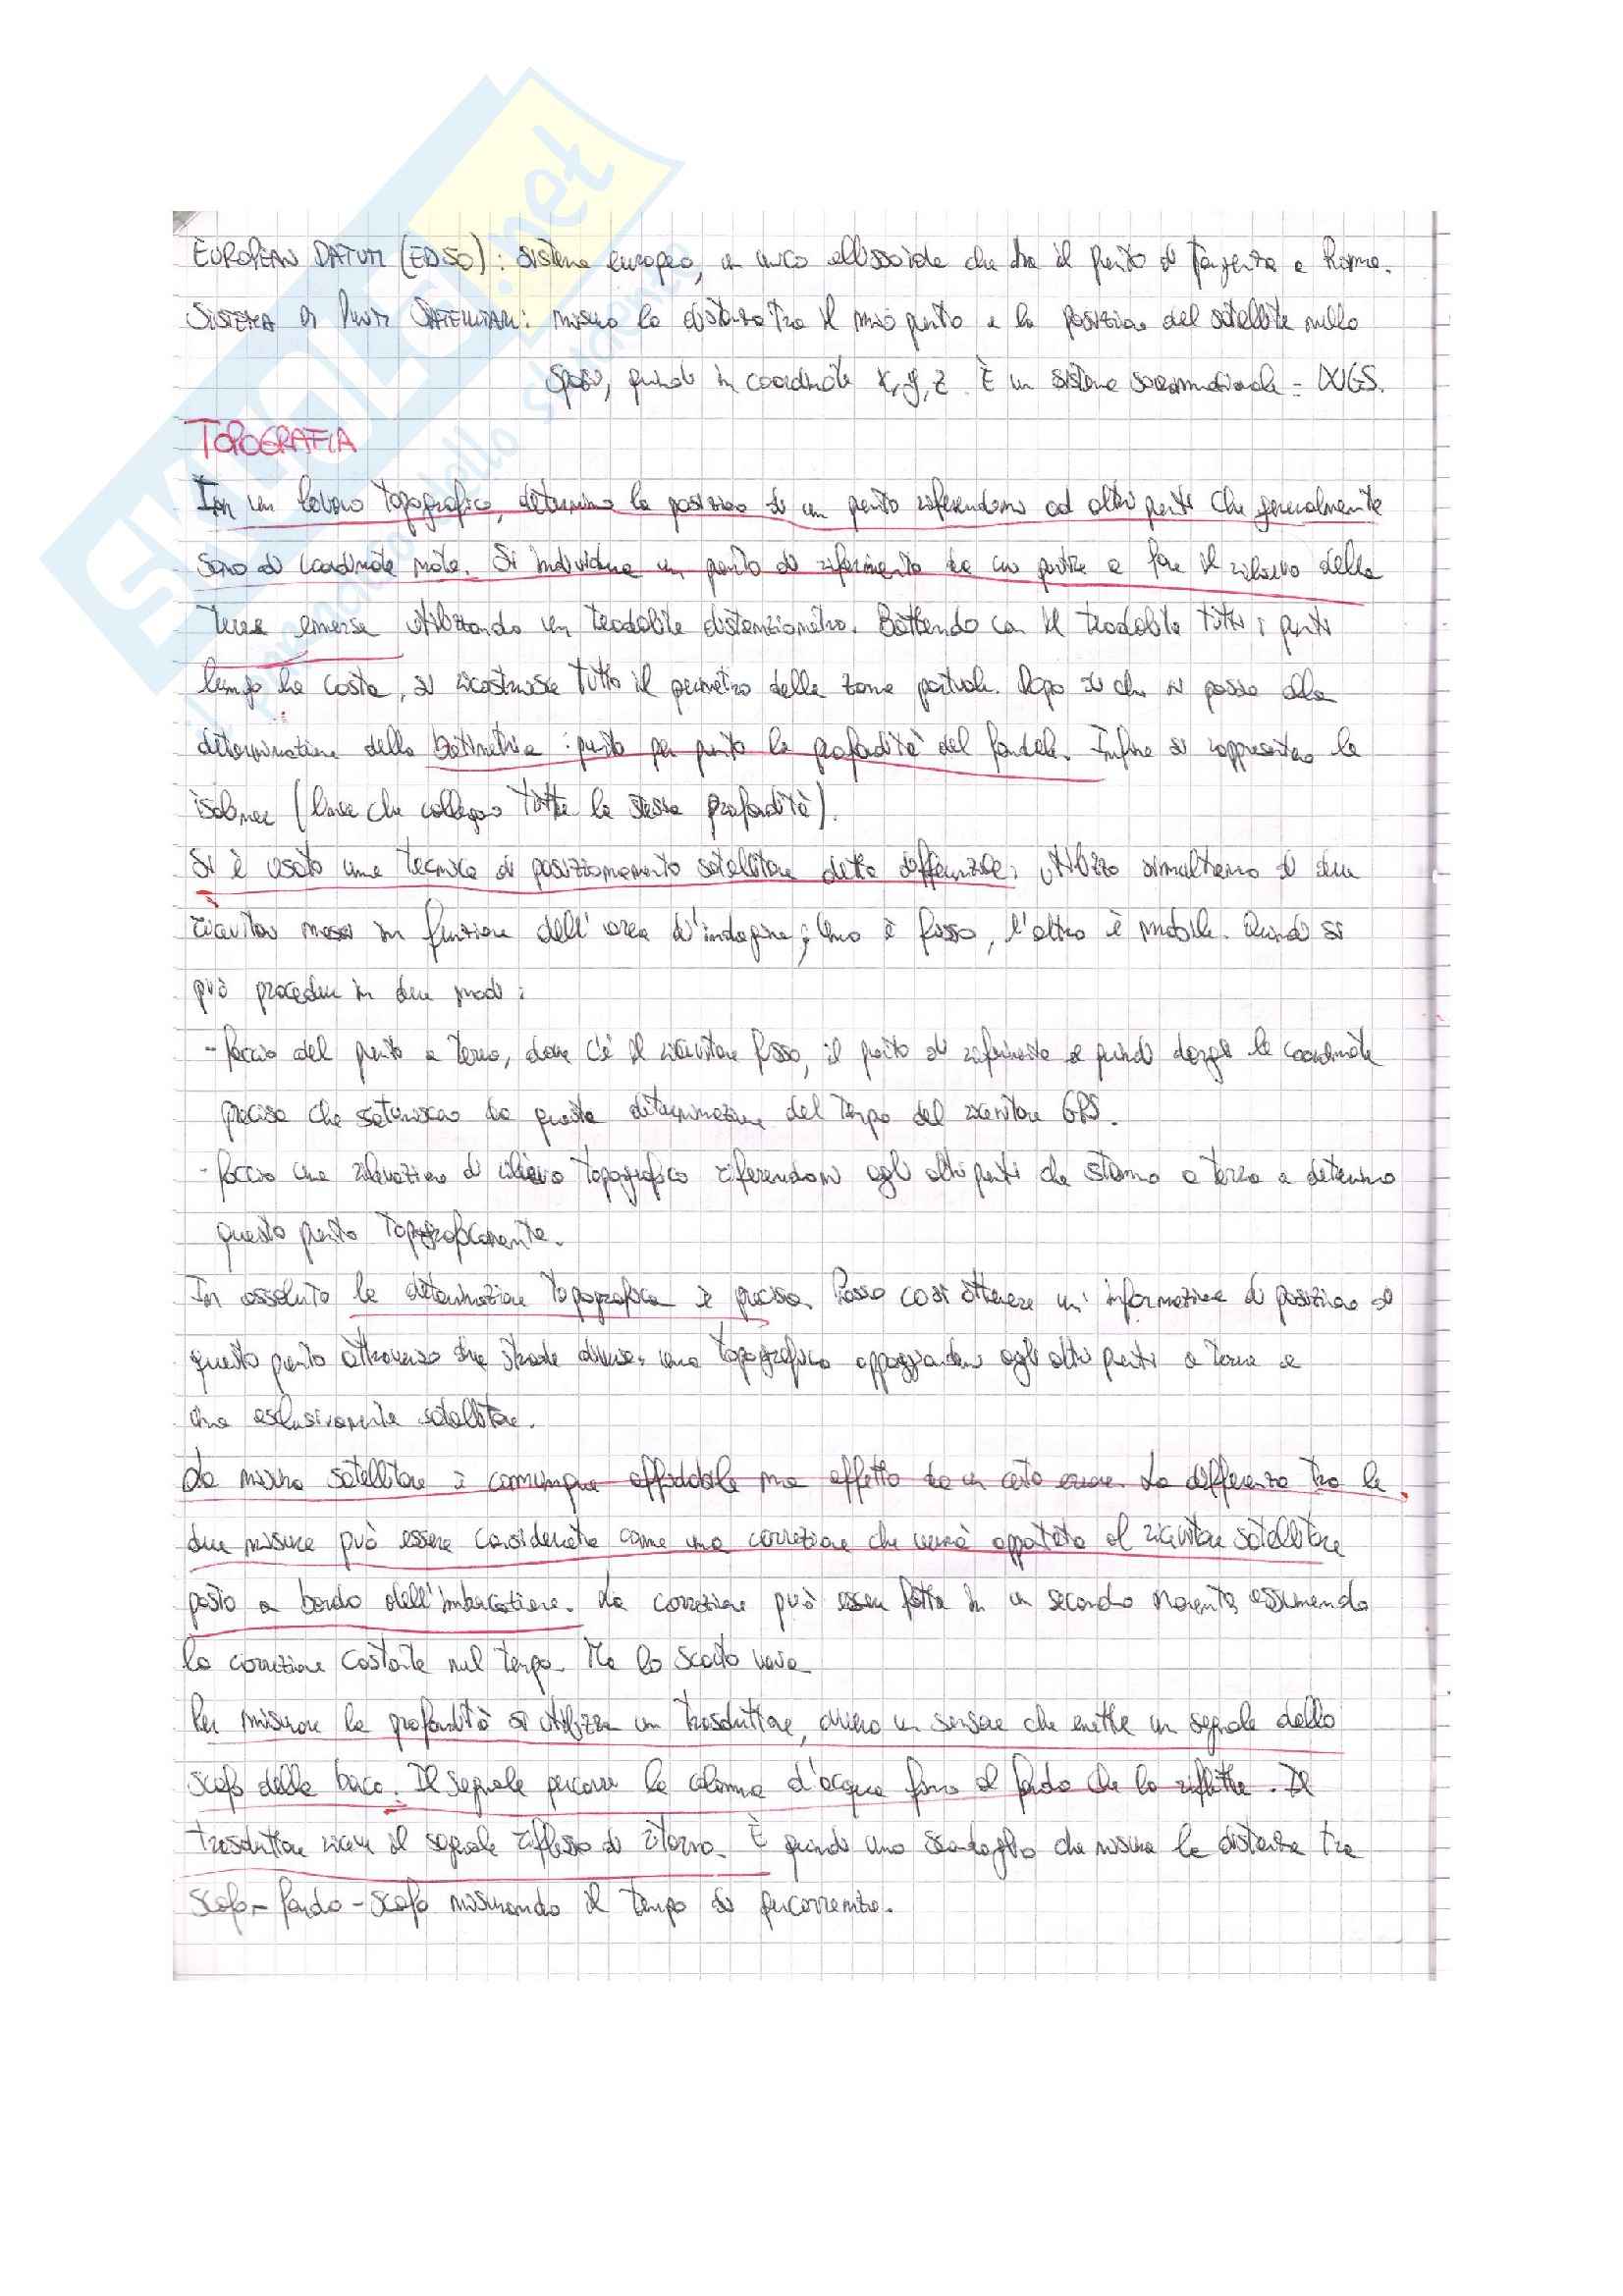 EUROPEAN DATUM (ED50): sistema europeo, un unico ellissoide che ha il punto di tangenza a Roma.
SISTEMA DI PUNTI SATELLITARI: misuro la distanza tra il mio punto e la posizione del satellite nello
spazio, quindi in coordinate x, y, z. È un sistema sovranazionale = WGS.
TOPOGRAFIA
In un lavoro topografico, determino la posizione di un punto riferendomi ad altri punti che generalmente
sono di coordinate note. Si individua un punto di riferimento da cui partire e fare il rilievo della
terra emersa utilizzando un teodolite distanziometro. Battendo con il teodolite tutti i punti
lungo la costa, si ricostruisce tutto il perimetro della zona portuale. Dopo di che si passa alla
determinazione della batimetria: punto per punto la profondità del fondale. Infine si rappresentano le
isolinee (linee che collegano tutte la stessa profondità).
Si è usato una tecnica di posizionamento satellitare detta differenziale: utilizzo simultaneo di due
ricevitori messi in funzione dell'area d'indagine; uno è fisso, l'altro è mobile. Quindi si
può procedere in due modi:
- faccio del punto a terra, dove c'è il ricevitore fisso, il punto di riferimento e quindi le coordinate
precise che da questa determinazione del tempo del ricevitore GPS.
- faccio una rilevazione di rilievo topografico riferendomi agli altri punti che stanno a terra e determino
questo punto topograficamente.
In assoluto la determinazione topografica è precisa. Posso così ottenere un'informazione di posizione di
questo punto attraverso due strade diverse: una topografica appoggiandomi agli altri punti a terra e
una esclusivamente satellitare.
La misura satellitare è comunque affidabile ma affetta da un certo errore. La differenza tra le
due misure può essere considerata come una correzione che verrà apportata al ricevitore satellitare
posto a bordo dell'imbarcazione. La correzione può essere fatta in un secondo momento assumendo
la correzione costante nel tempo. Ma lo scarto varia.
Per misurare la profondità si utilizza un trasduttore, ovvero un sensore che emette un segnale dallo
scafo della barca. Il segnale percorre la colonna d'acqua fino al fondo che lo riflette. Il
trasduttore riceve il segnale riflesso di ritorno. È quindi uno scandaglio che misura la distanza tra
scafo - fondo - scafo misurando il tempo di percorrenza.
SKUOLA.net